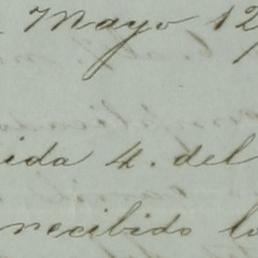 Mayo 12
ida 4. del
recibido lo